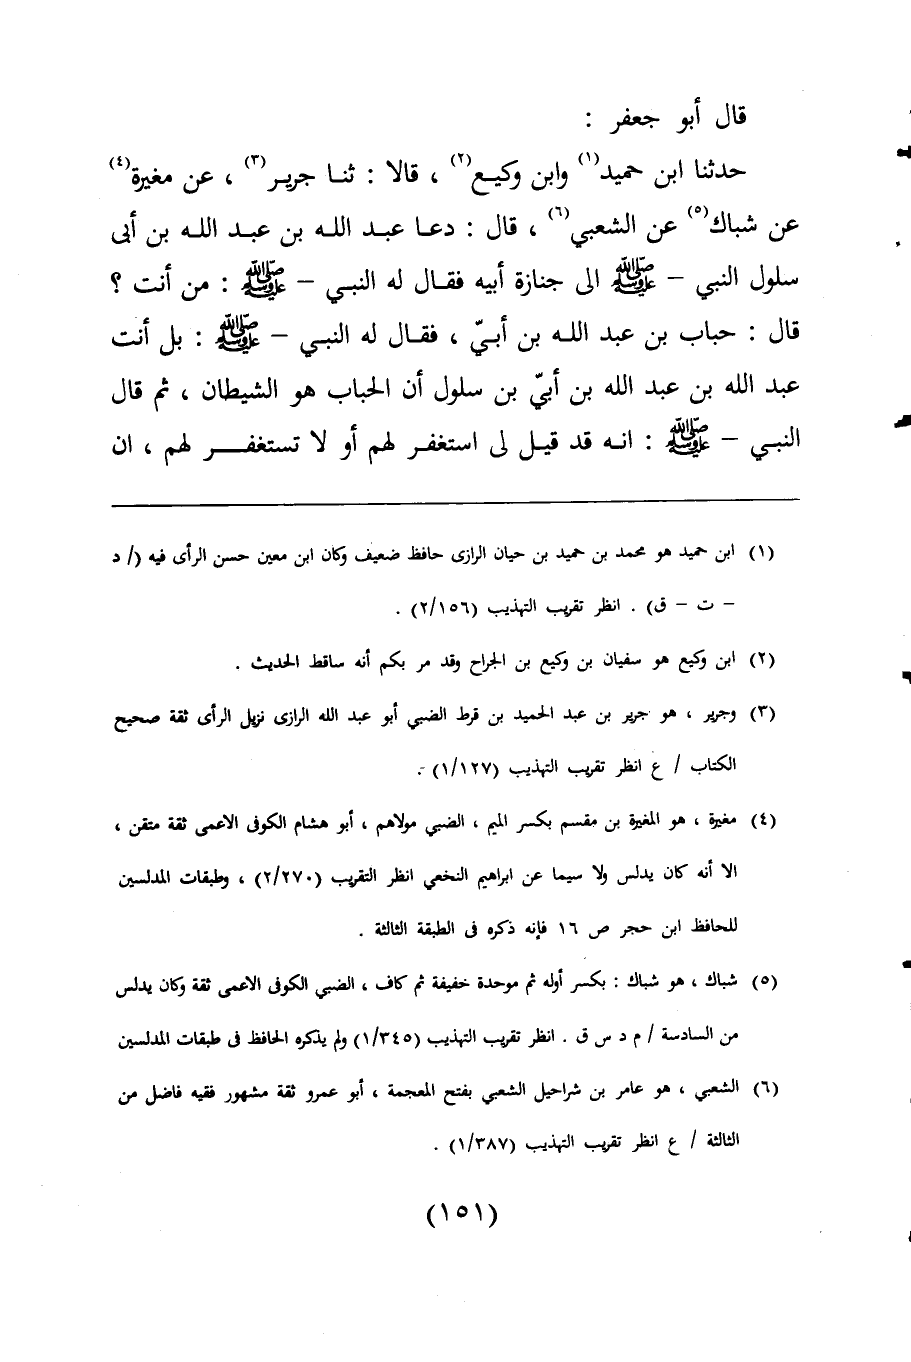 قال أبو جعفر :
حدثنا ابن حميد(١) وابن وكيع(٢) ، قالا : ثنا جرير(٣) ، عن مغيرة(٤)
عن شباك(٥) عن الشعبي(٦) ، قال : دعا عبد الله بن عبد الله بن أبى
سلول النبي – ﷺ الى جنازة أبيه فقال له النبي – ﷺ : من أنت ؟
قال : حباب بن عبد الله بن أبيّ ، فقال له النبي – ﷺ : بل أنت
عبد الله بن عبد الله بن أبيّ بن سلول أن الحباب هو الشيطان ، ثم قال
النبي – ﷺ : انه قد قيل لى استغفر لهم أو لا تستغفر لهم ، ان
(١) ابن حميد هو محمد بن حميد بن حيان الرازى حافظ ضعيف وكان ابن معين حسن الرأى فيه (/ د
– ت – ق) . انظر تقريب التهذيب (٢/١٥٦) .
(٢) ابن وكيع هو سفيان بن وكيع بن الجراح وقد مر بكم أنه ساقط الحديث .
(٣) وجرير ، هو جرير بن عبد الحميد بن قرط الضبي أبو عبد الله الرازى نزيل الرأى ثقة صحيح
الكتاب / ع انظر تقريب التهذيب (١/١٢٧) .
(٤) مغيرة ، هو المغيرة بن مقسم بكسر الميم ، الضبي مولاهم ، أبو هشام الكوفى الاعمى ثقة متقن ،
الا أنه كان يدلس ولا سيما عن ابراهيم النخعي انظر التقريب (٢/٢٧٠) ، وطبقات المدلسين
للحافظ ابن حجر ص ١٦ فإنه ذكره فى الطبقة الثالثة .
(٥) شباك ، هو شباك : بكسر أوله ثم موحدة خفيفة ثم كاف ، الضبي الكوفى الاعمى ثقة وكان يدلس
من السادسة / م د س ق . انظر تقريب التهذيب (١/٣٤٥) ولم يذكره الحافظ فى طبقات المدلسين
(٦) الشعبي ، هو عامر بن شراحيل الشعبي بفتح المعجمة ، أبو عمرو ثقة مشهور فقيه فاضل من
الثالثة / ع انظر تقريب التهذيب (١/٣٨٧) .
(١٥١)